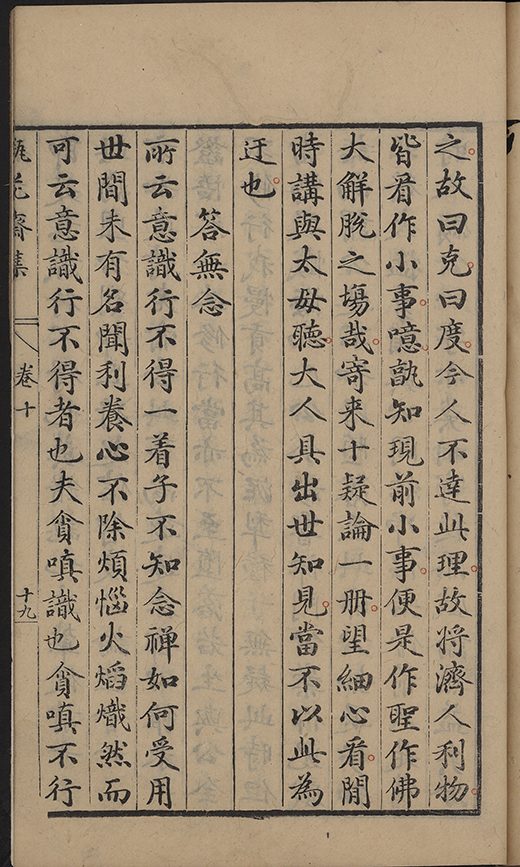 之故曰克曰度今人不達此理故将濟人利物
皆看作小事噫孰知現前小事便是作聖作佛
大解脫之塲哉寄来十疑論一册望細心看閒
時講與太毋聽大人具出世知見當不以此為
迂也
答無念
所云意識行不得一着子不知念禅如何受用
世間未有名聞利養心不除煩惱火熖熾然而
可云意識行不得者也夫貪嗔識也貪嗔不行
瓶花齋集
卷十
十九